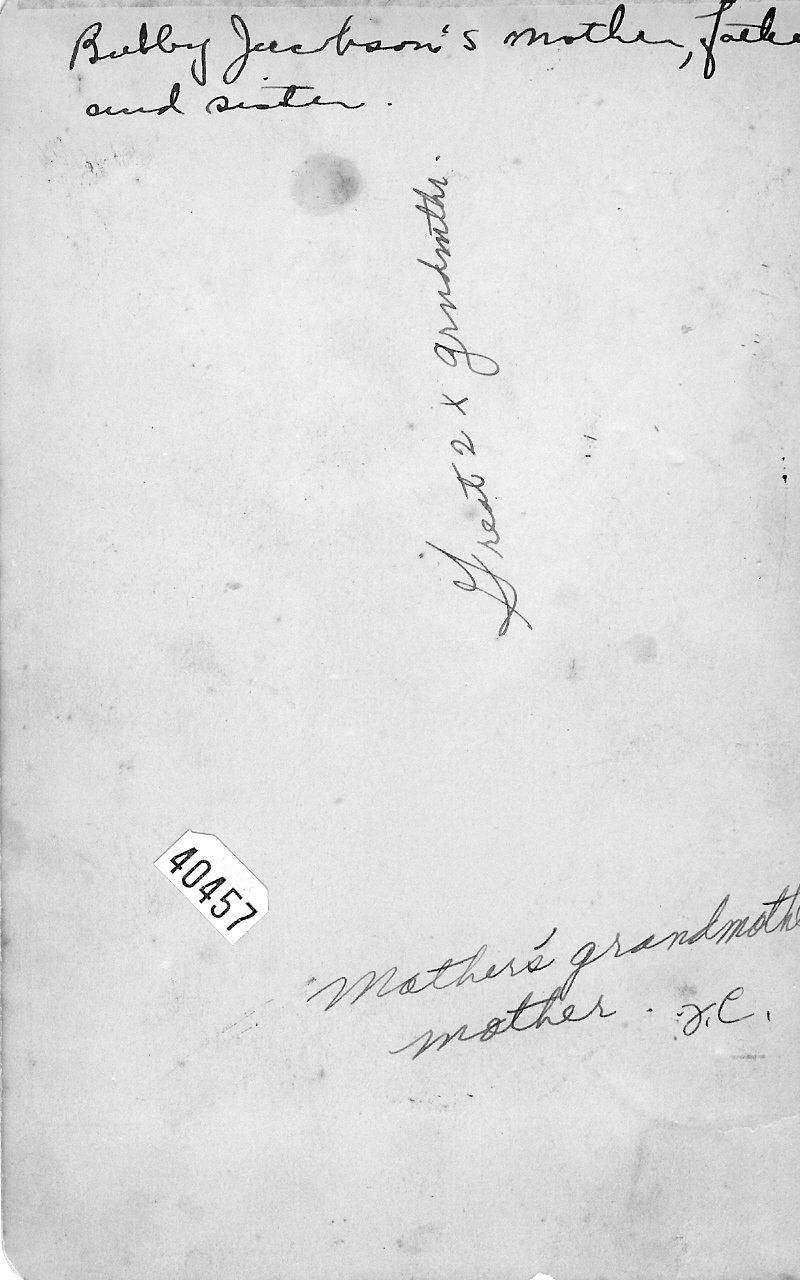 Bubby Jacobson's mother, fathe
and sister.
Great 2 x grndmthr.
40457
Mother's grandmothe
mother.